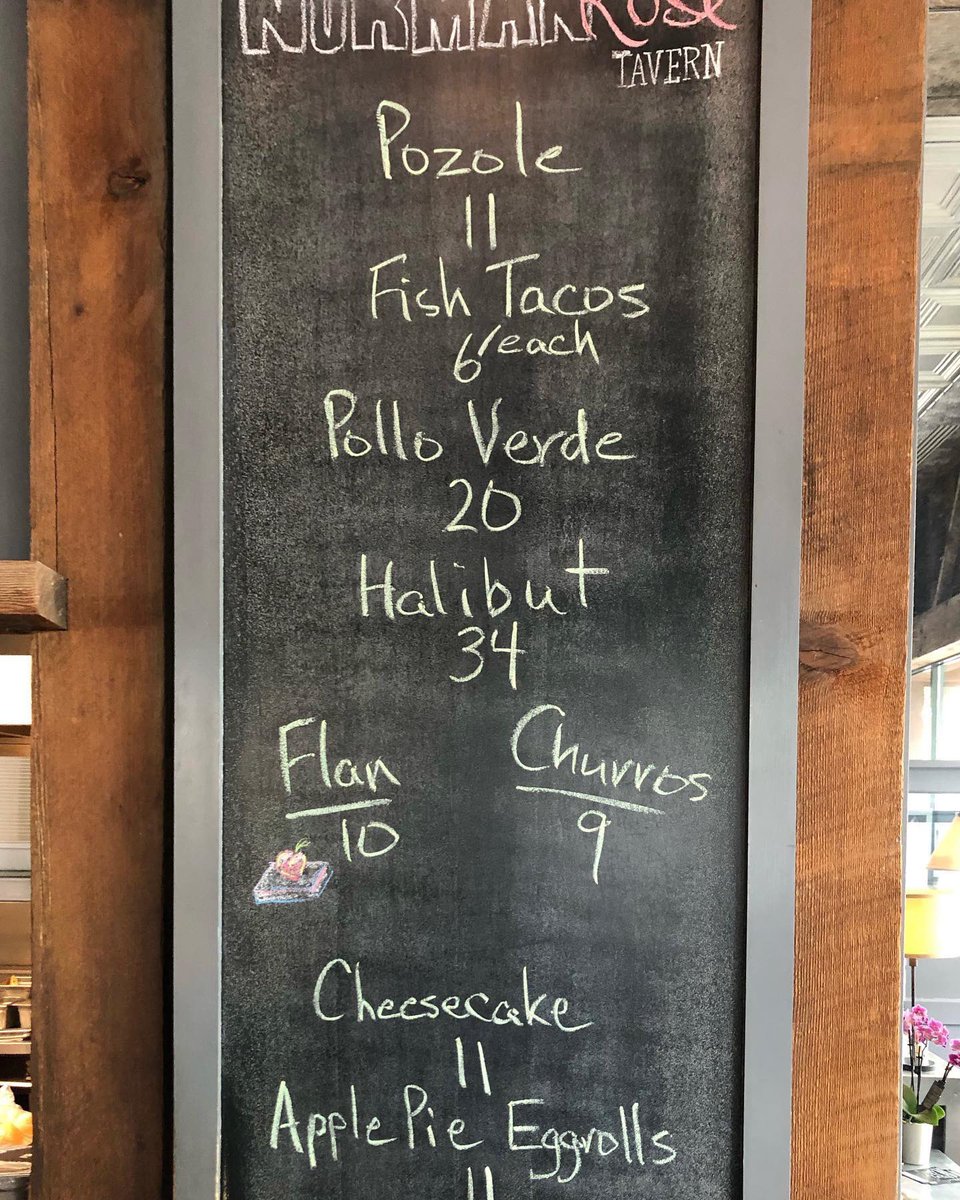 NORMAN Rose
TAVERN
Pozole
11
Fish Tacos
6/each
Pollo Verde
20
Halibut
34
Flan Churros
10 9
Cheesecake
11
Apple Pie Eggrolls
11